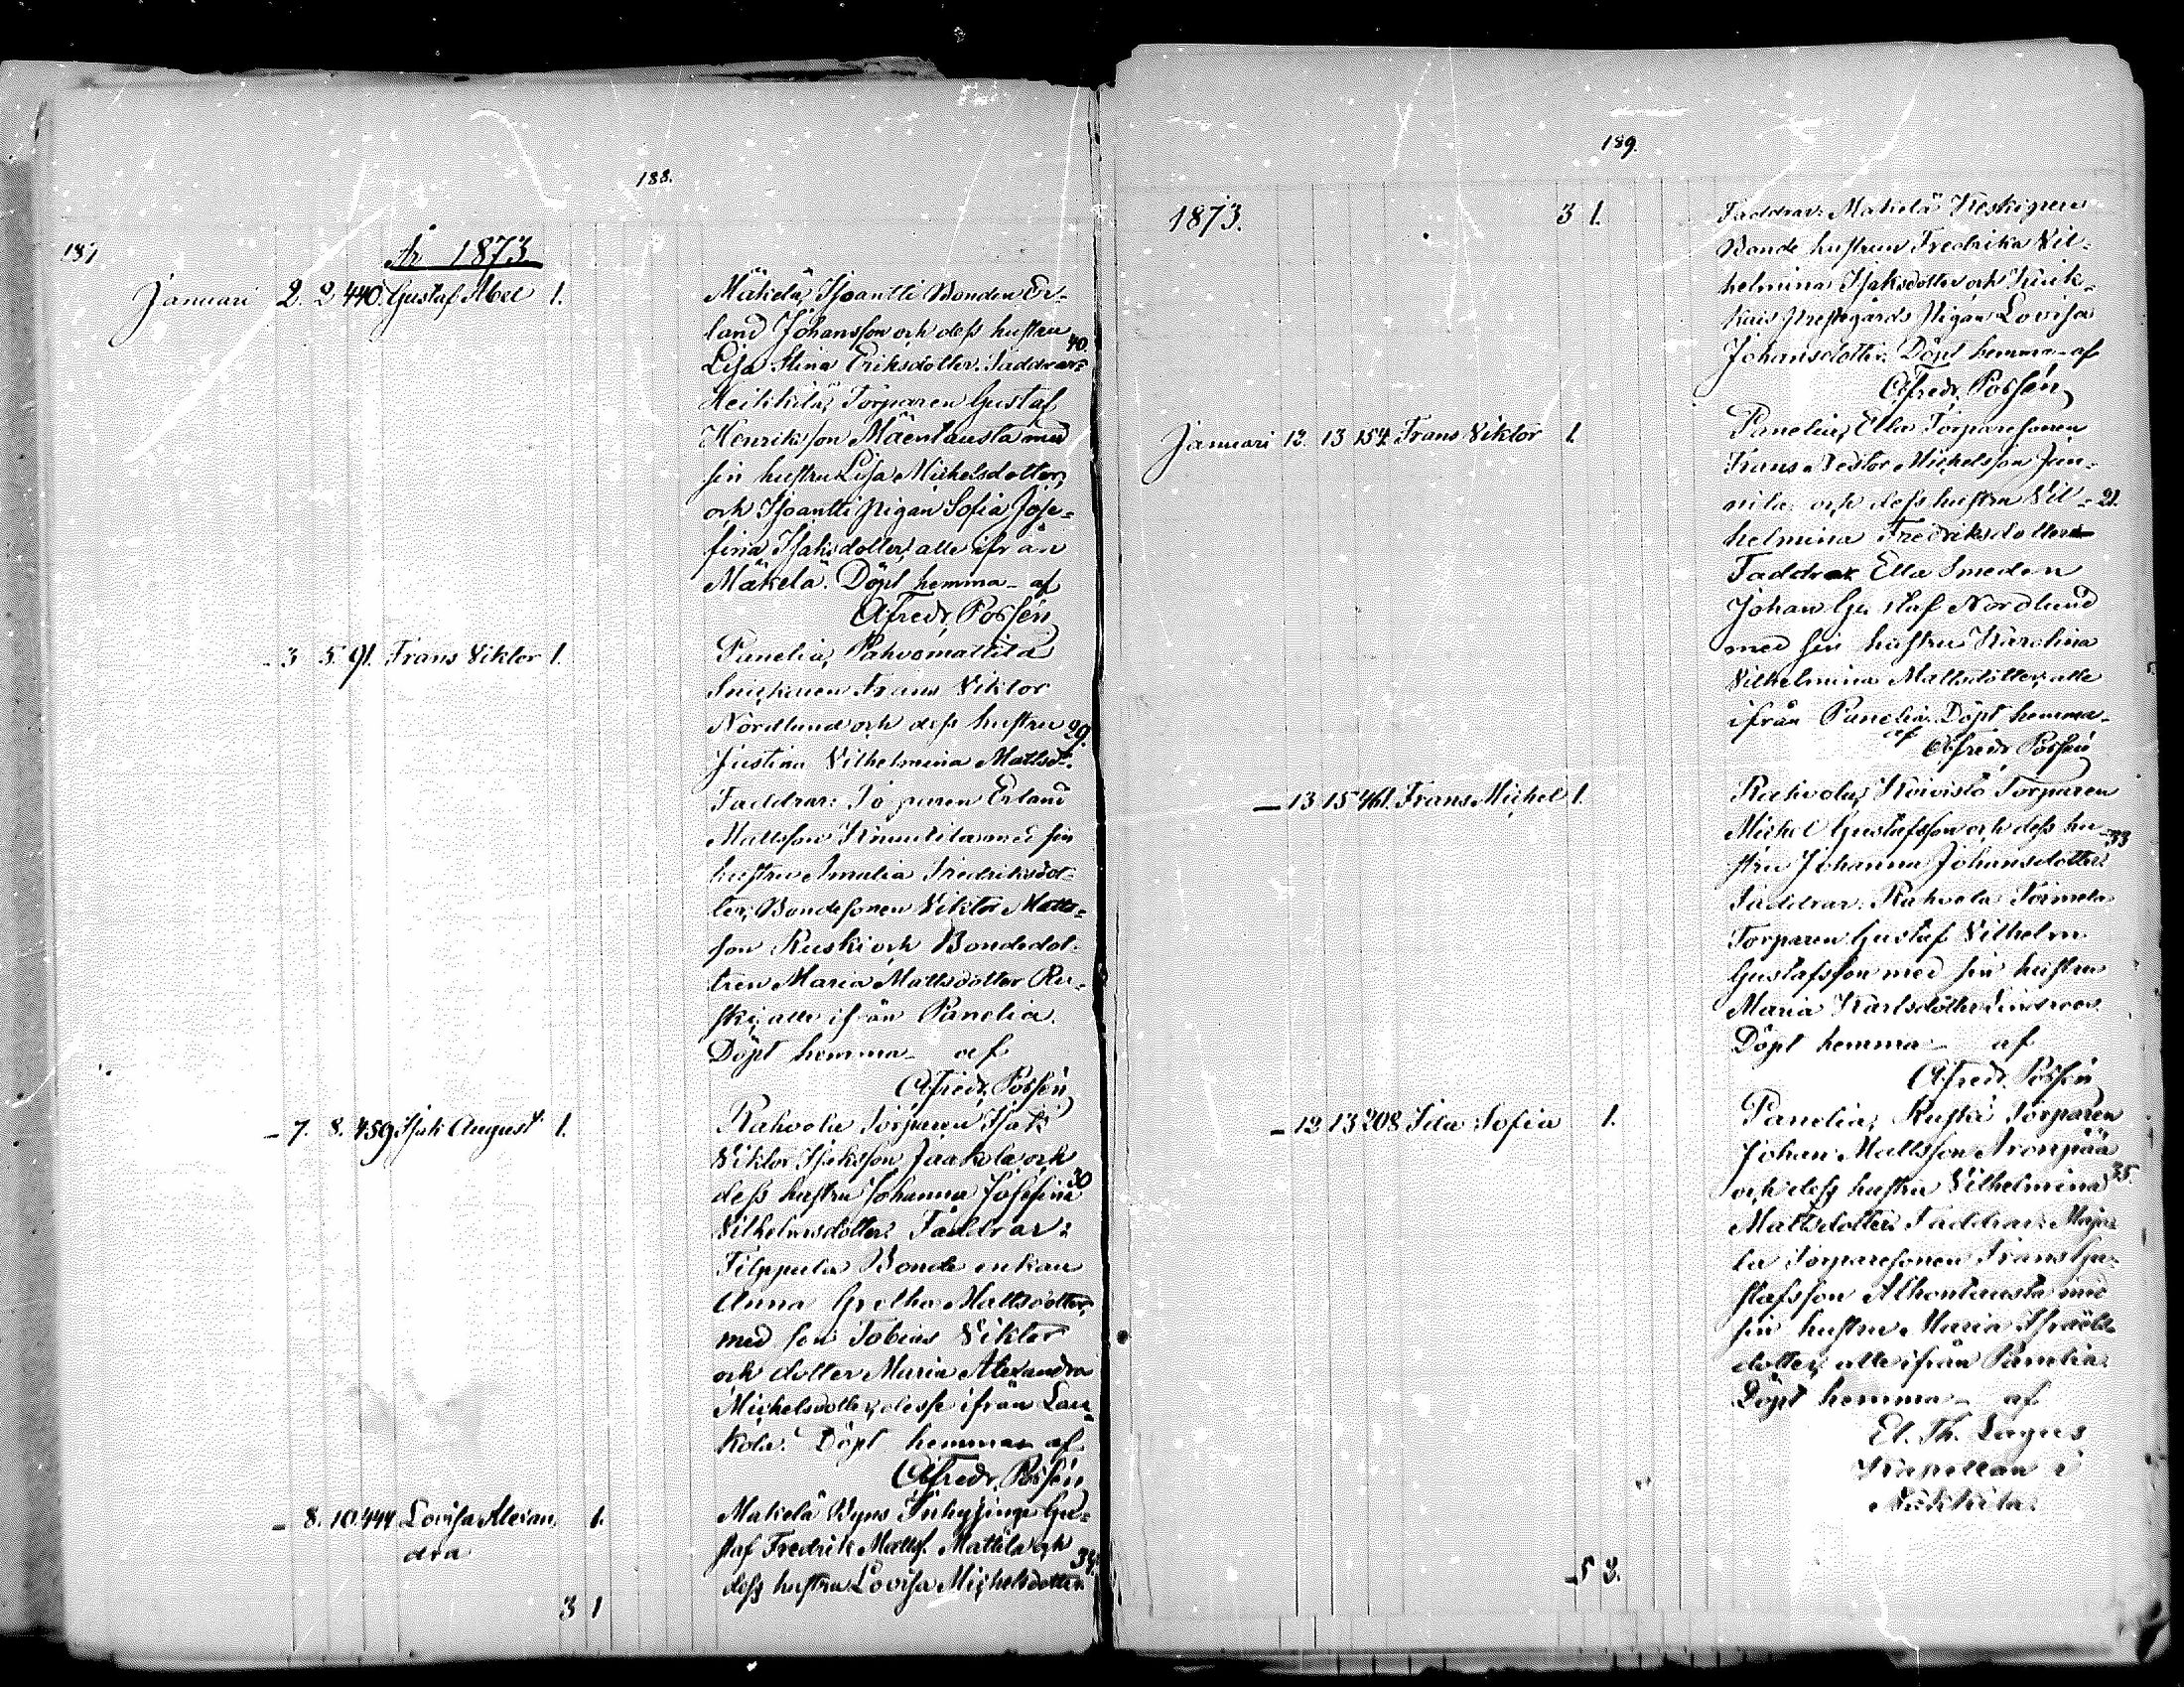 188.
187
År 1873.
Januari 2. 2 440. Gustaf Abel 1.
Mäkelä, Isoantti Bonden Er-
land Johansson och dess hustru 40.
Lisa Stina Eriksdotter. Faddrar:
Heikkilä, Torparen Gustaf
Henriksson Mäentausta med
sin hustru Lisa Michelsdotter,
och Isoantti Pigan Sofia Jose-
fina Isaksdotter, alle ifrån
Mäkelä. Döpt hemma - af
Alfredr. Possén
- 3 5. 91. Frans Viktor 1.
Panelia, Pahvomattila
Snickaren Frans Viktor
Nordlund och dess hustru 29.
Justina Vilhelmina Mattsd:r
Faddrar: Torparen Erland
Mattsson Knuutila med sin
hustru Amalia Fredriksdot-
ter, Bondesonen Viktor Matts-
son Ruski och Bondedot-
tren Maria Mattsdotter Ru-
ski, alle ifrån Panelia.
Döpt hemma - af
Alfredr. Possén
- 7. 8. 459 Isak August 1.
Rahvola Torparen Isak
Viktor Isaksson Jaakola och
dess hustru Johanna Josefina 30
Vilhelmsdotter. Faddrar:
Filppula Bonde enkan
Anna Gretha Mattsdotter,
med son Tobias Viktor
och dotter Maria Alexandra
Michelsdotter, desse ifrån Lau-
kola. Döpt hemma - af
Alfredr. Possén
- 8. 10. 444 Lovisa Alexan- 1.
dra
Mäkelä Byns Inhysing Gu-
staf Fredrik Matts. Mattila och
dess hustru Lovisa Michelsdotter.
3 1
189.
1873. 3 1.
Faddrar: Mäkelä Keskigren
Bonde hustrun Fredrika Vil-
helmina Isaksdotter och
Prestgårds Pigan Lovisa
Johansdotter. Döpt hemma - af
Alfredr. Possén
Januari 12. 13 154. Frans Viktor 1.
Panelia, Ella Torparesonen
Frans Nestor Michelsson Jun-
nila och dess hustru Vil- 21.
helmina Fredriksdotter
Faddrar Ella Smeden
Johan Gustaf Nordlund
med sin hustru Karolina
Vilhelmina Mattsdotter, alle
ifrån Panelia. Döpt hemma -
af Alfredr. Possén
- 13 15 461. Frans Michel 1.
Rahvola, Koivisto Torparen
Michel Gustafsson och dess hu- 33
stru Johanna Johansdotter.
Faddrar: Rahvola Törmelä
Torparen Gustaf Vilhelm
Gustafsson med sin hustru
Maria Karlsdotter Lindroos.
Döpt hemma - af
Alfredr. Possén
- 12 13 208 Ida Sofia 1.
Panelia, Ruski Torparen
Johan Mattsson Aronpää
och dess hustru Vilhelmina 35.
Mattsdotter. Faddrar: Maju-
la Torparesonen Frans Gu-
stafsson Alhontausta med
sin hustru Maria Israels-
dotter, alle ifrån Panelia.
Döpt hemma - af
El. Th. Lagus
Kapellan i
Nakkila.
5 3.